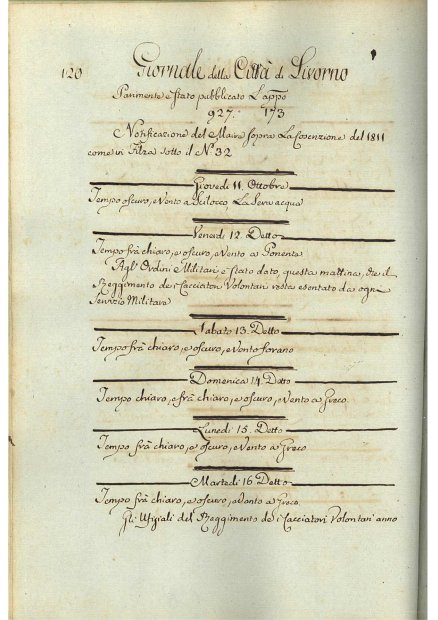 120 Giornale della Città di Livorno
Parimente è stato pubblicato L'app.º
927. 173
Notificazione del Maire sopra La Coscrizione del 1811
come in Filza sotto il Nº 32
Giovedi 11. Ottobre
Tempo oscuro, e Vento a Scilocco, La Sera acqua
Venerdi 12. Detto
Tempo frà chiaro, e oscuro, e Vento a Ponente
Agl' Ordini Militari è stato dato, questa mattina, che il
Reggimento de Cacciatori Volontari resta esentato da ogni
Servizio Militare
Sabato 13. Detto
Tempo frà chiaro, e oscuro, e Vento forano
Domenica 14. Detto
Tempo chiaro, e frà chiaro, e oscuro, e Vento a Greco
Lunedi 15. Detto
Tempo frà chiaro, e oscuro, e Vento a Greco
Martedi 16 Detto
Tempo frà chiaro, e oscuro, e Vento a Greco
Gli Ufiziali del Reggimento de Cacciatori Volontari anno